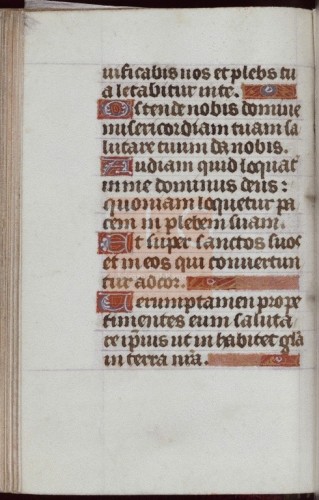 uificabis nos et plebs tu
a letabitur in te.
Ostende nobis domine
misericordiam tuam sa
lutare tuum da nobis.
Audiam quid loquat̄
in me dominus deus:
quoniam loquetur pa
cem in plebem suam.
Et super sanctos suos
et in eos qui conuertun
tur ad cor.
Uerumptamen prope
timentes eum saluta
re ip̄ius ut inhabitet gl̄a
in terra n̄ra.